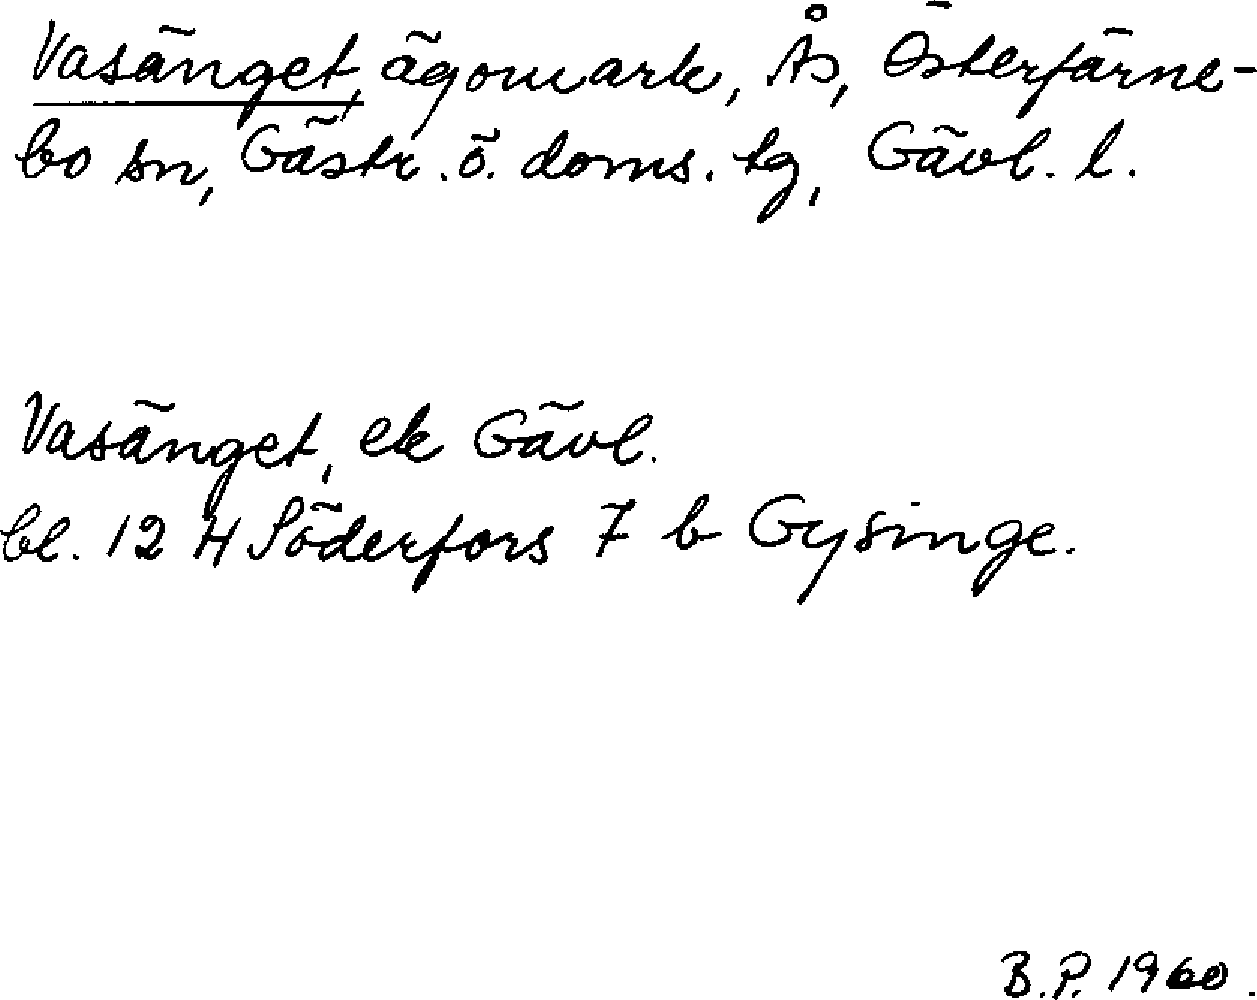 Vasänget, ägomark, Ås, Österfärne-
bo sn, Gästr. ö. doms. tg, Gävl. l.
Vasänget, ek Gävl.
bl. 12 H Söderfors 7 b Gysinge.
B.P. 1960.